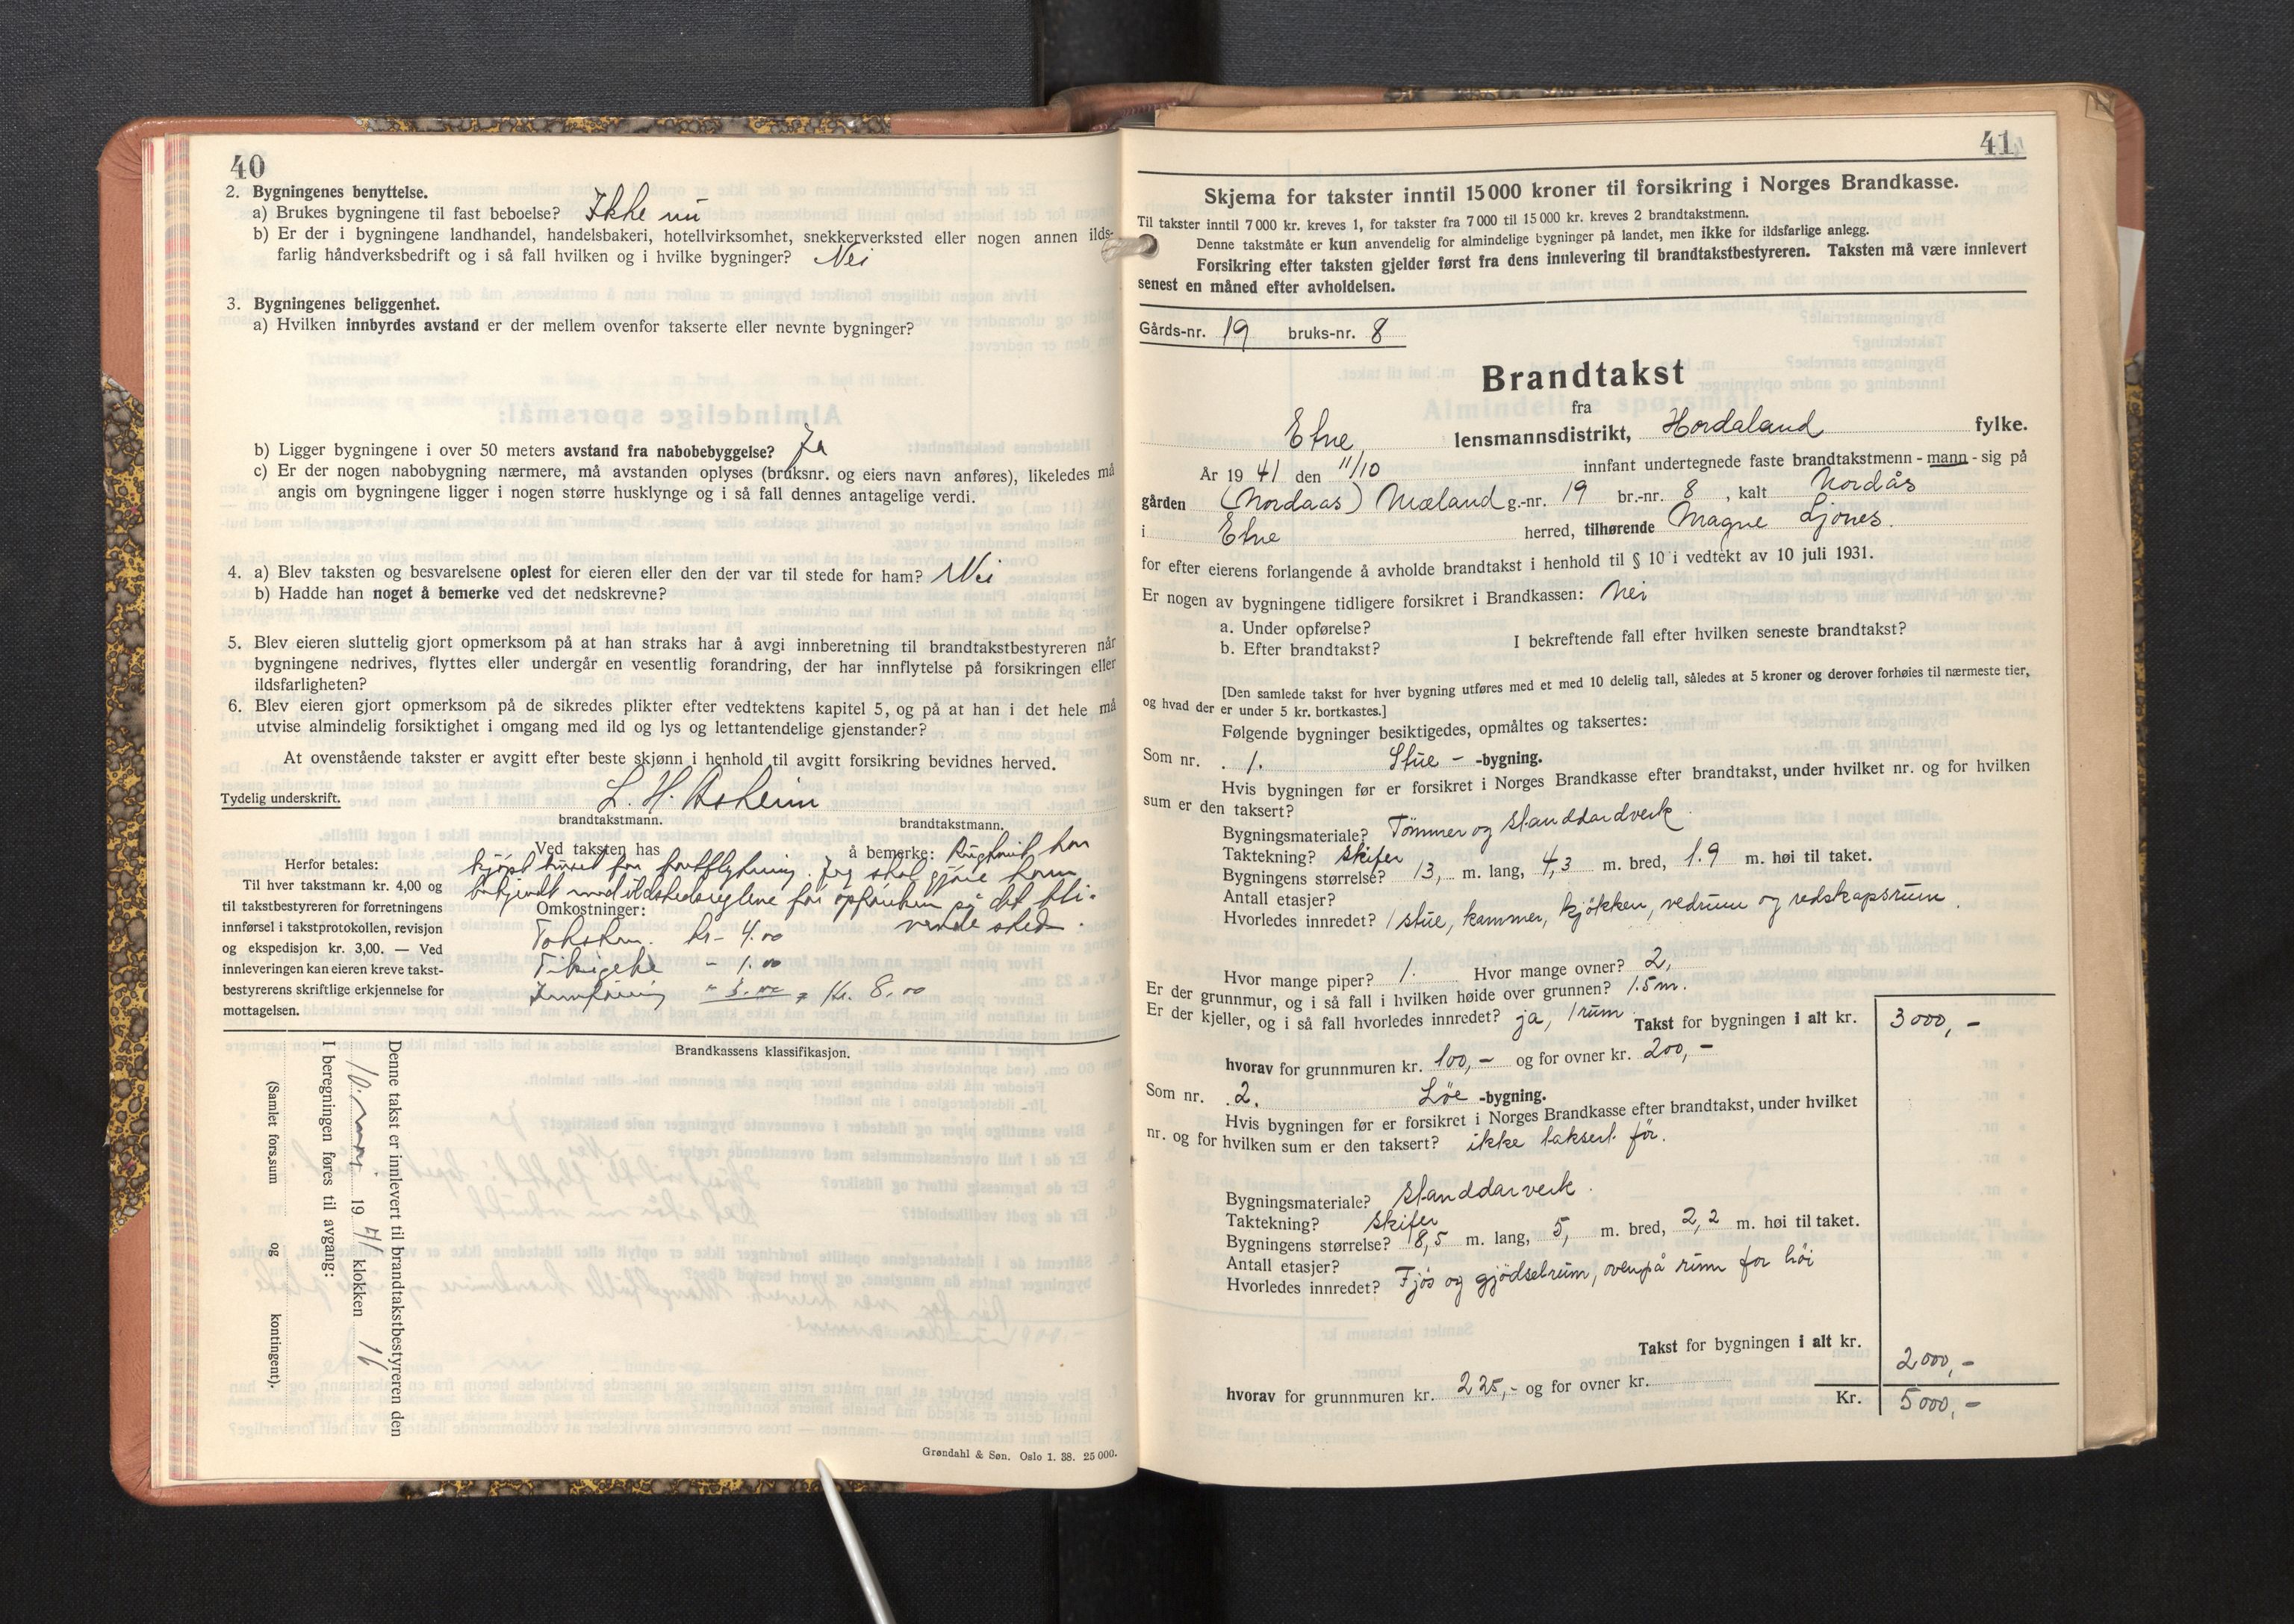 40
2. Bygningenes benyttelse.
a) Brukes bygningene til fast beboelse? Ikke nu
b) Er der i bygningene landhandel, handelsbakeri, hotellvirksomhet, snekkerverksted eller nogen annen ilds-
farlig håndverksbedrift og i så fall hvilken og i hvilke bygninger? Nei
3. Bygningenes beliggenhet.
a) Hvilken innbyrdes avstand er der mellem ovenfor takserte eller nevnte bygninger?
b) Ligger bygningene i over 50 meters avstand fra nabobebyggelse? Ja
c) Er der nogen nabobygning nærmere, må avstanden oplyses (bruksnr. og eiers navn anføres), likeledes må
angis om bygningene ligger i nogen større husklynge og i så fall dennes antagelige verdi.
4. a) Blev taksten og besvarelsene oplest for eieren eller den der var til stede for ham? Nei
b) Hadde han noget å bemerke ved det nedskrevne?
5. Blev eieren sluttelig gjort opmerksom på at han straks har å avgi innberetning til brandtakstbestyreren når
bygningene nedrives, flyttes eller undergår en vesentlig forandring, der har innflytelse på forsikringen eller
ildsfarligheten?
6. Blev eieren gjort opmerksom på de sikredes plikter efter vedtektens kapitel 5, og på at han i det hele må
utvise almindelig forsiktighet i omgang med ild og lys og lettantendelige gjenstander?
At ovenstående takster er avgitt efter beste skjønn i henhold til avgitt forsikring bevidnes herved.
Tydelig underskrift. L. H. Aasheim
brandtakstmann. brandtakstmann.
Ved taksten has å bemerke: har
kjøpt huset for fortflytning. Jeg skal gjøre ham
bekjendt med ildstedsreglene før opførelsen på det bli-
vende sted.
Herfor betales:
Til hver takstmann kr. 4,00 og
til takstbestyreren for forretningens
innførsel i takstprotokollen, revisjon
og ekspedisjon kr. 3,00. — Ved
innleveringen kan eieren kreve takst-
bestyrerens skriftlige erkjennelse for
mottagelsen.
Omkostninger:
Taksten. kr - 4.00
- 1.00
Innføring " 3.00 = Kr. 8.00
Brandkassens klassifikasjon.
Denne takst er innlevert til brandtakstbestyreren den
10. mai 19 41 klokken 16
I beregningen føres til avgang:
(Samlet fors.sum og kontingent).
Grøndahl & Søn. Oslo 1. 38. 25 000.
41
Skjema for takster inntil 15 000 kroner til forsikring i Norges Brandkasse.
Til takster inntil 7 000 kr. kreves 1, for takster fra 7 000 til 15 000 kr. kreves 2 brandtakstmenn.
Denne takstmåte er kun anvendelig for almindelige bygninger på landet, men ikke for ildsfarlige anlegg.
Forsikring efter taksten gjelder først fra dens innlevering til brandtakstbestyreren. Taksten må være innlevert
senest en måned efter avholdelsen.
Gårds-nr. 19 bruks-nr. 8
Brandtakst
fra
Etne lensmannsdistrikt, Hordaland fylke.
År 19 41 den 11/10 innfant undertegnede faste brandtakstmenn - mann - sig på
gården (Nordaas) Mæland g.-nr. 19 br.-nr. 8, kalt Nordås
i Etne herred, tilhørende Magne Ljones.
for efter eierens forlangende å avholde brandtakst i henhold til § 10 i vedtekt av 10 juli 1931.
Er nogen av bygningene tidligere forsikret i Brandkassen: Nei
a. Under opførelse?
b. Efter brandtakst? I bekreftende fall efter hvilken seneste brandtakst?
[Den samlede takst for hver bygning utføres med et med 10 delelig tall, således at 5 kroner og derover forhøies til nærmeste tier,
og hvad der er under 5 kr. bortkastes.]
Følgende bygninger besiktigedes, opmåltes og taksertes:
Som nr. 1. Stue - -bygning.
Hvis bygningen før er forsikret i Norges Brandkasse efter brandtakst, under hvilket nr. og for hvilken
sum er den taksert?
Bygningsmateriale? Tømmer og standdardverk
Taktekning? Skifer
Bygningens størrelse? 13, m. lang, 4,3 m. bred, 1.9 m. høi til taket.
Antall etasjer?
Hvorledes innredet? 1 stue, kammer, kjøkken, vedrum og redskapsrum.
Hvor mange piper? 1. Hvor mange ovner? 2,
Er der grunnmur, og i så fall i hvilken høide over grunnen? 1.5 m.
Er der kjeller, og i så fall hvorledes innredet? ja, 1 rum. Takst for bygningen i alt kr. 3000,-
hvorav for grunnmuren kr. 100,- og for ovner kr. 200,-
Som nr. 2. Løe -bygning.
Hvis bygningen før er forsikret i Norges Brandkasse efter brandtakst, under hvilket
nr. og for hvilken sum er den taksert? ikke taksert før.
Bygningsmateriale? Standdarverk.
Taktekning? Skifer
Bygningens størrelse? 8,5 m. lang, 5, m. bred, 2,2 m. høi til taket.
Antall etasjer?
Hvorledes innredet? Fjøs og gjødselrum, ovenpå rum for høi
Takst for bygningen i alt kr. 2000,-
hvorav for grunnmuren kr. 225,- og for ovner kr.
Kr. 5000,-